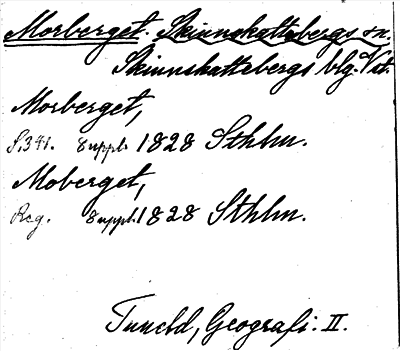 Morberget. Skinnskattebergs sn.
Skinnskattebergs blg. Vst.
Morberget,
S. 341. Suppl. 1828 Sthlm.
Moberget,
Reg. Suppl. 1828 Sthlm.
Tuneld, Geografi. II.